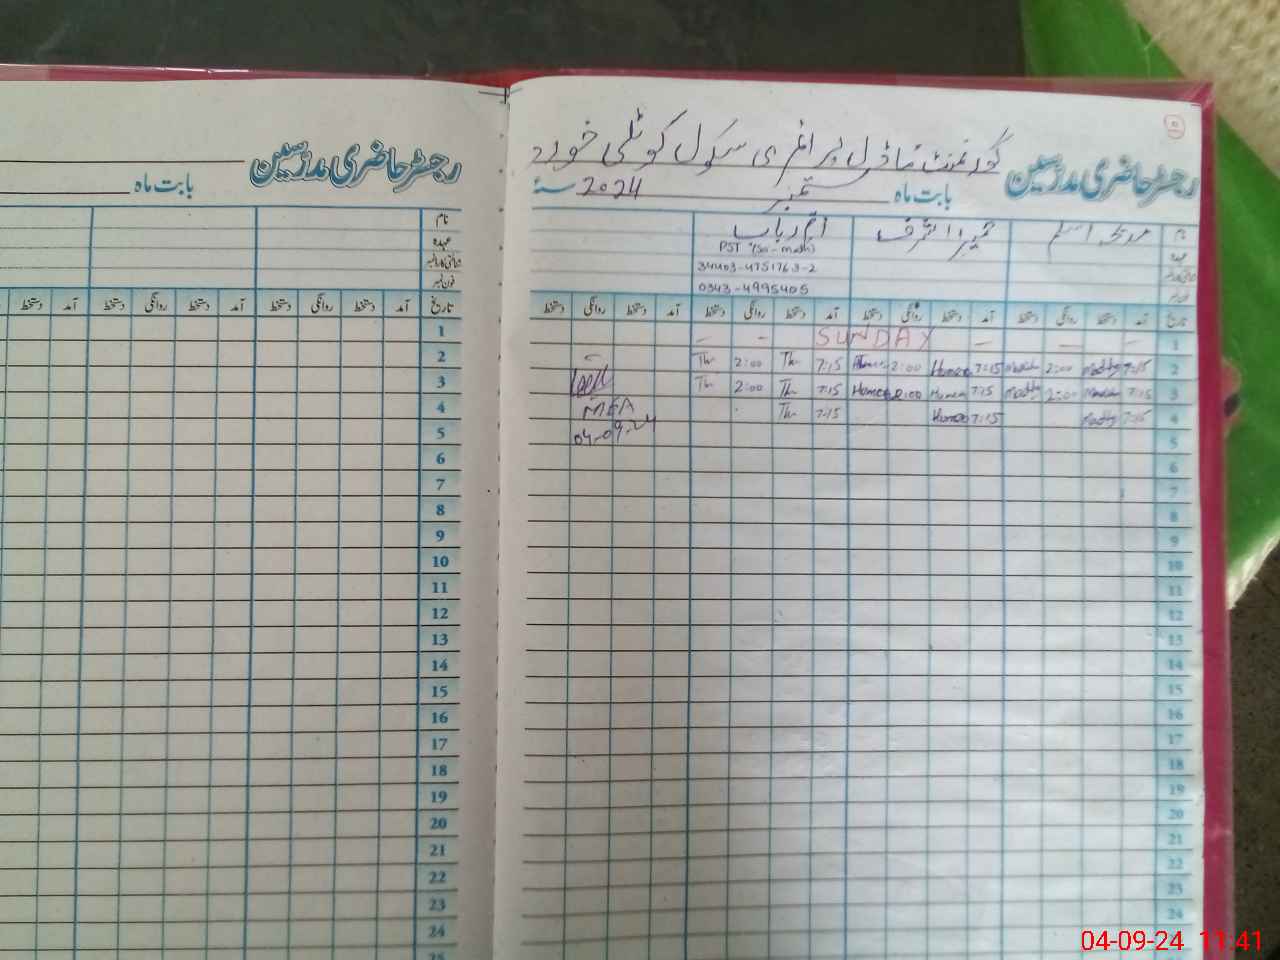 رجسٹر حاضری مدرسین گورنمنٹ ماڈل پرائمری سکول کوٹلی خورد
بابت ماہ ستمبر 2024 سنہ
نام
عہدہ PST (Sci-math)
شناختی کارڈ نمبر 34403-4751763-2
فون نمبر 0343-4995405
تاریخ آمد دستخط روانگی دستخط آمد دستخط روانگی دستخط آمد دستخط روانگی دستخط آمد دستخط روانگی دستخط
1 SUNDAY
2 7:15 2:00 7:15 Humera 2:00 7:15 Th 2:00 Th
3 7:15 2:00 7:15 Humera 2:00 7:15 Th 2:00 Th
4 7:15 7:15 Humera 7:15 Th
MEA
04-09-24
5
6
7
8
9
10
11
12
13
14
15
16
17
18
19
20
21
22
23
24
رجسٹر حاضری مدرسین
بابت ماہ
نام
عہدہ
شناختی کارڈ نمبر
فون نمبر
تاریخ آمد دستخط روانگی دستخط آمد دستخط روانگی دستخط آمد دستخط
1
2
3
4
5
6
7
8
9
10
11
12
13
14
15
16
17
18
19
20
21
22
23
24
25
04-09-24 11:41